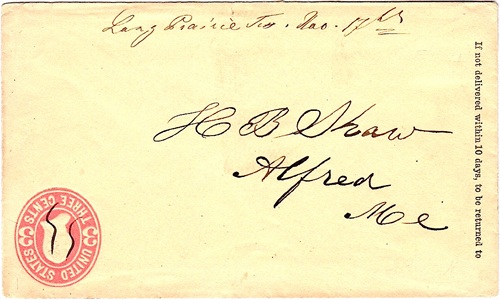 Long Prairie Tex. Nov. 17th
H B Shaw
Alfred
Me
If not delivered within 10 days, to be returned to
UNITED STATES
THREE CENTS
3 3